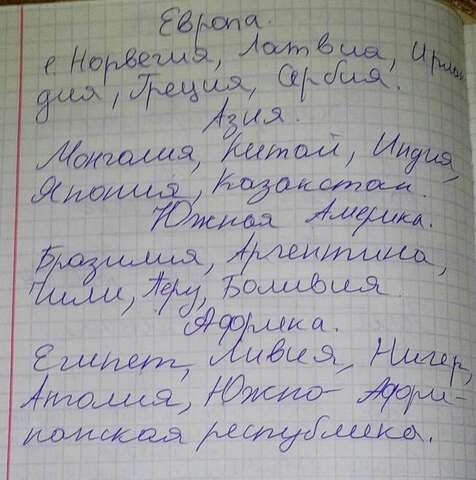 Европа.
г. Норвегия, Латвия, Ирлан
дия, Греция, Сербия.
Азия.
Монголия, Китай, Индия,
Япония, Казакстан.
Южная Америка.
Бразилия, Аргентина,
Чили, Перу, Боливия.
Африка.
Египет, Ливия, Нигер,
Аголия, Южно- Афри-
канская республика.